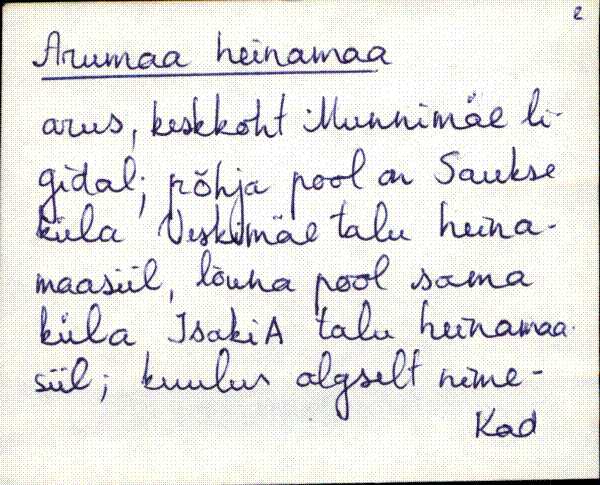 2
Arumaa heinamaa
arus, keskkoht Munnimäe li-
gidal; põhja pool on Saukse
küla Veskimäe talu heina-
maasiil, lõuna pool sama
küla Isaki A talu heinamaa-
siil; kuulus algselt nime-
Kad